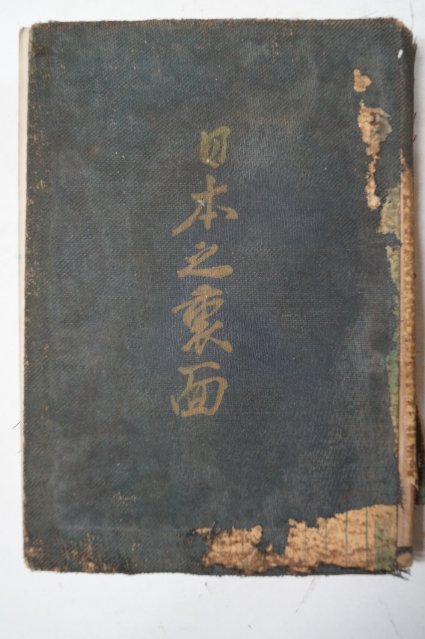 日本之裏面